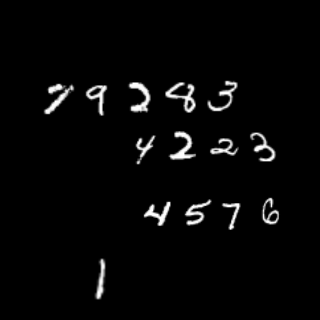 79283
4223
4576
1